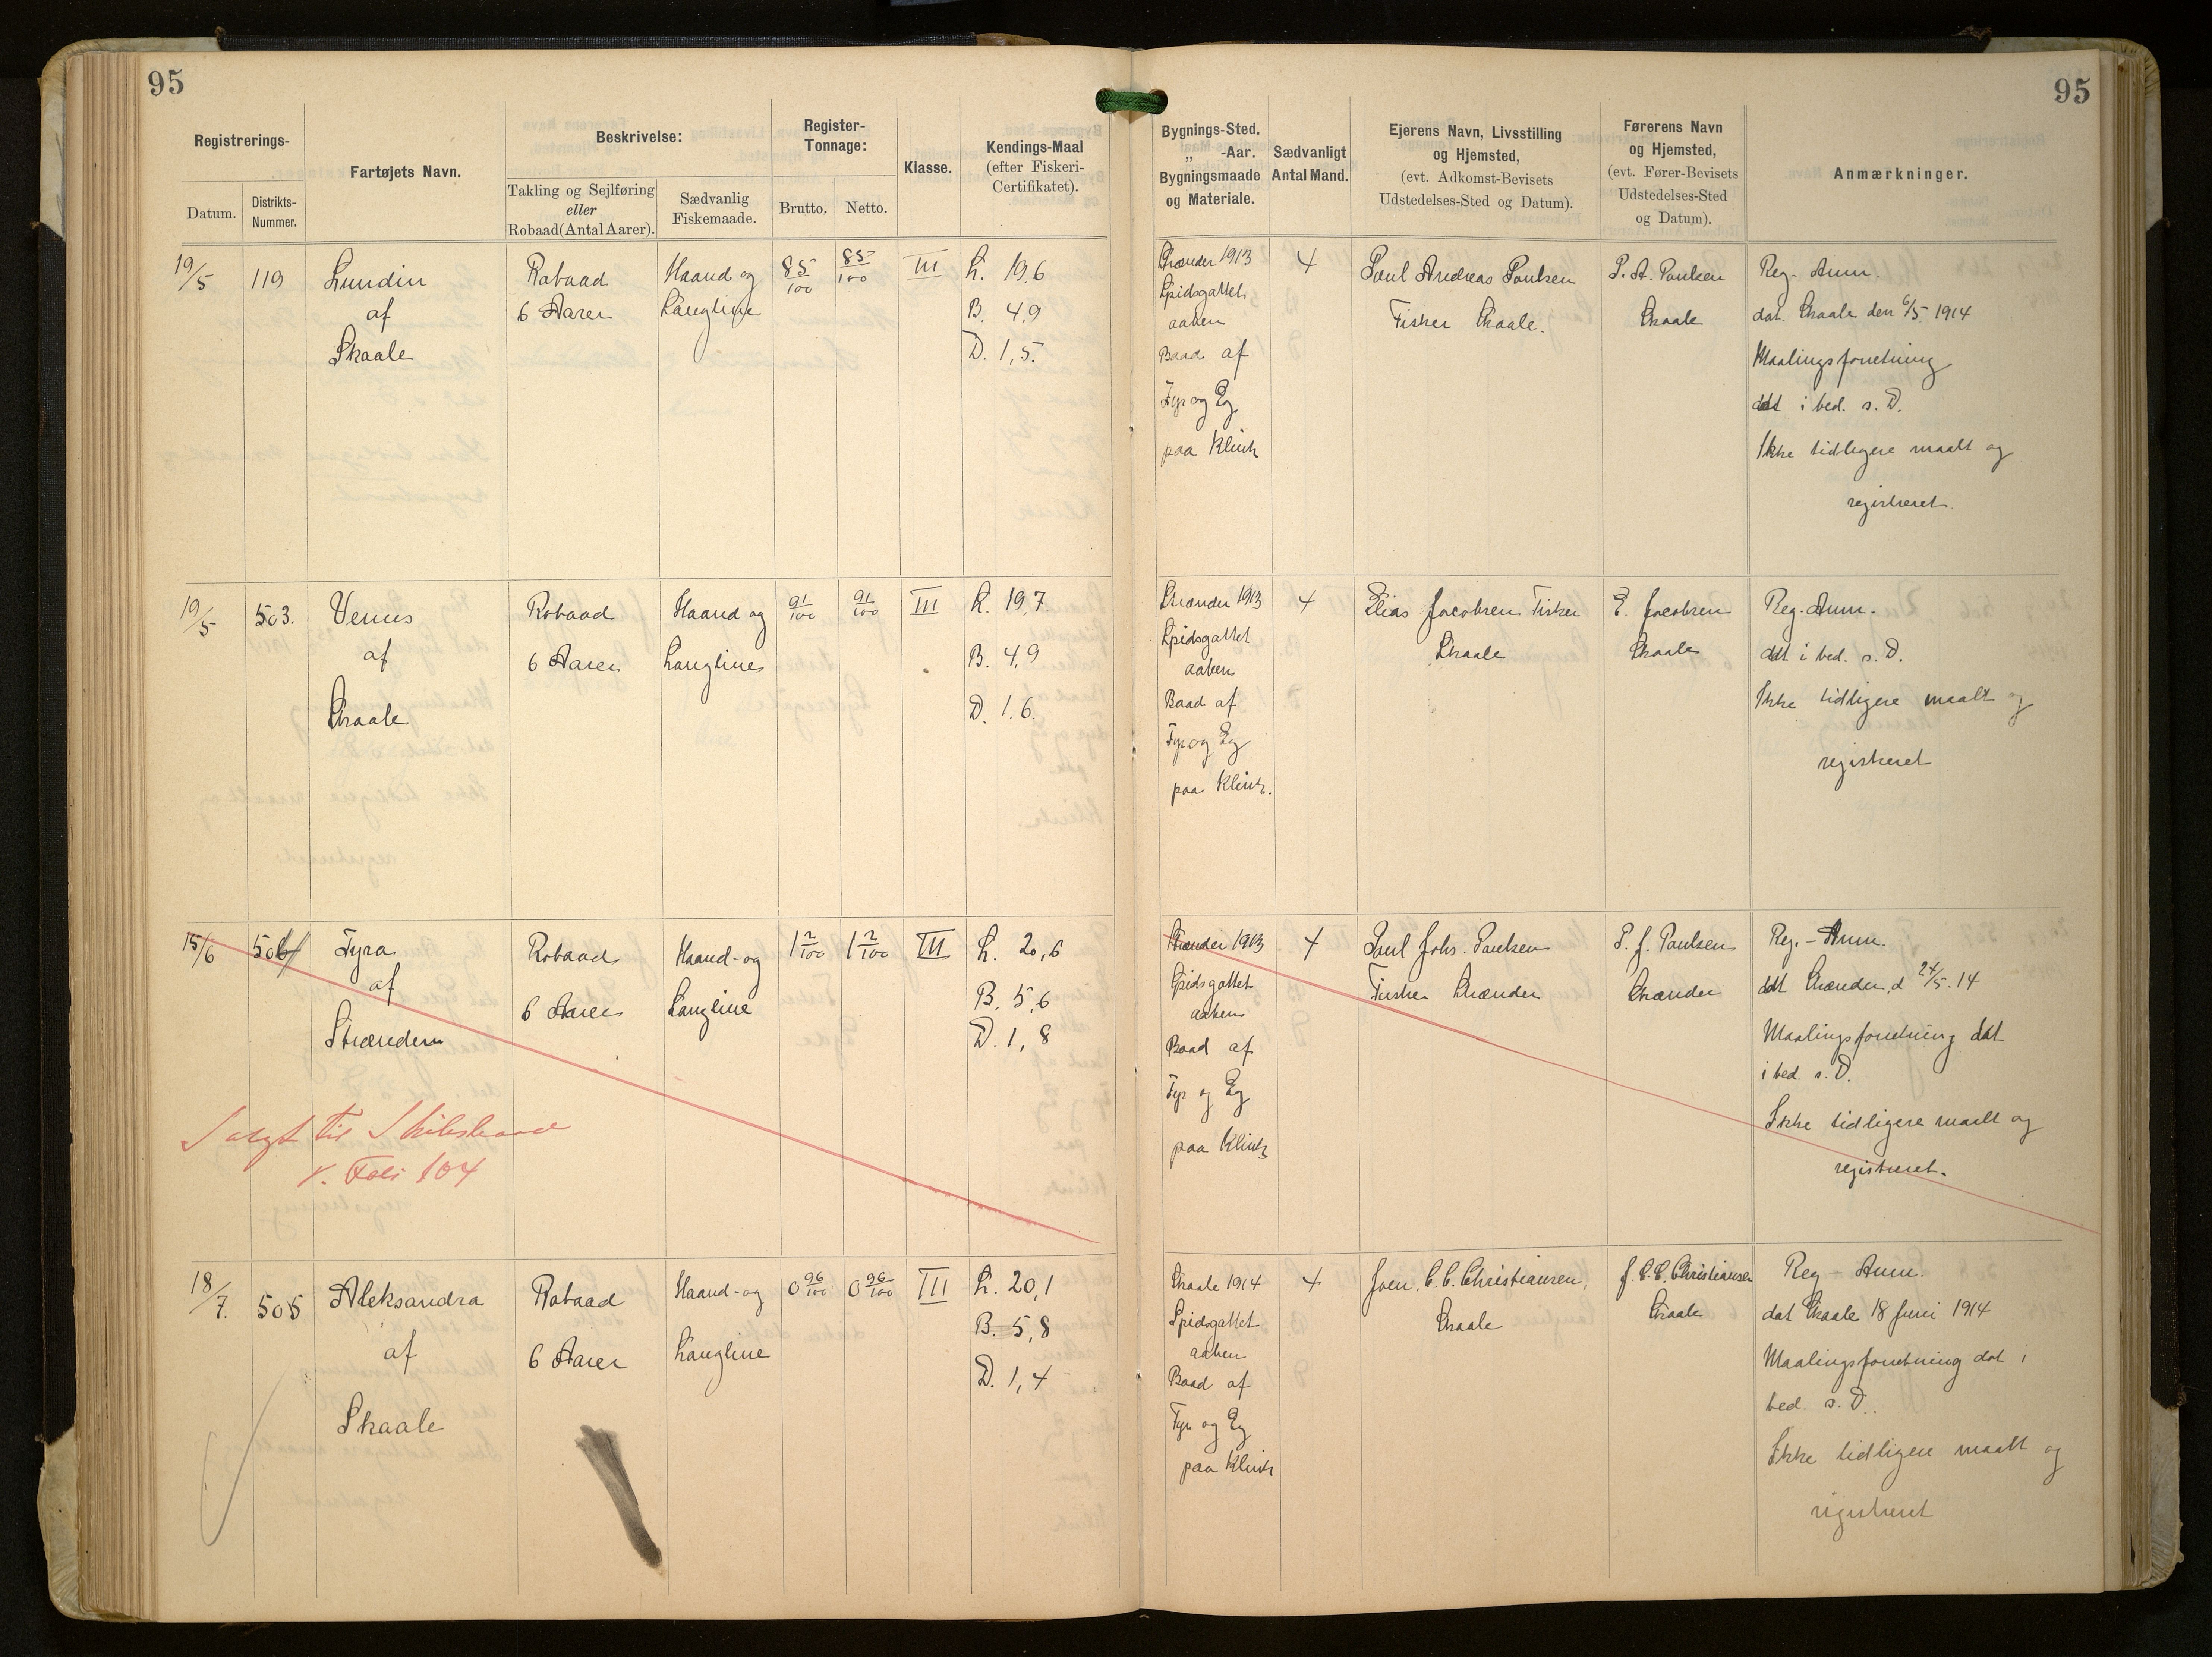 95
95
Registrerings-
Datum.
Distrikts-
Nummer.
Fartøjets Navn.
Beskrivelse:
Takling og Sejlføring
eller
Robaad (Antal Aarer).
Sædvanlig
Fiskemaade.
Register-
Tonnage:
Brutto.
Netto.
Klasse.
Kendings-Maal
(efter Fiskeri-
Certifikatet).
Bygnings-Sted.
„ -Aar.
Bygningsmaade
og Materiale.
Sædvanligt
Antal Mand.
Ejerens Navn, Livsstilling
og Hjemsted,
(evt. Adkomst-Bevisets
Udstedelses-Sted og Datum).
Førerens Navn
og Hjemsted,
(evt. Fører-Bevisets
Udstedelses-Sted
og Datum).
Anmærkninger.
19/5
119
Lundin
af
Skaale
Robaad
6 Aarer
Haand og
Langline
85/100
85/100
III
L. 19,6
B. 4,9
D. 1,5.
Strænder 1913
Spidsgattet
aaben
Baad af
Fyr og Eg
paa Klink
4
Poul Andreas Poulsen
Fisker Skaale.
P. A. Poulsen
Skaale
Reg- Anm.
dat. Skaale den 6/5 1914
Maalingsforretning
dat i bed. s. D.
Ikke tidligere maalt og
registreret.
19/5
503.
Venus
af
Skaale
Robaad
6 Aarer
Haand og
Langline
91/100
91/100
III
L. 19,7
B. 4,9
D. 1,6.
Strænder 1913
Spidsgattet
aaben
Baad af
Fyr og Eg
paa Klink.
4
Elias Jacobsen Fisker
Skaale
E. Jacobsen
Skaale
Reg. Anm.
dat i bed. s. D.
Ikke tidligere maalt og
registreret
15/6
Fyra
af
Strændern
Robaad
6 Aarer
Haand- og
Langline
1 2/100
1 2/100
III
L. 20,6
B. 5,6
D. 1,8
Salgt til
v. Foli 104
Strænder 1913
Spidsgattet
aaben
Baad af
Fyr og Eg
paa Klink
4
Poul Johs. Poulsen
Fisker Strænder
P. J. Poulsen
Strænder
Reg. - Anm.
dat Strænder, d 24/5. 14
Maalingsforretning dat
i bed. s. D.
Ikke tidligere maalt og
registreret.
18/7.
505
Aleksandra
af
Skaale
Robaad
6 Aarer
Haand- og
Langline
0 96/100
0 96/100
III
L. 20,1
B. 5,8
D. 1,4
Skaale 1914
Spidsgattet
aaben
Baad af
Fyr og Eg
paa Klink
4
Joen. C. C. Christiansen,
Skaale
J. C. C. Christiansen
Skaale
Reg - Anm.
dat Skaale 18 Juni 1914
Maalingsforretning dat i
bed. s. D.
Ikke tidligere maalt og
registreret